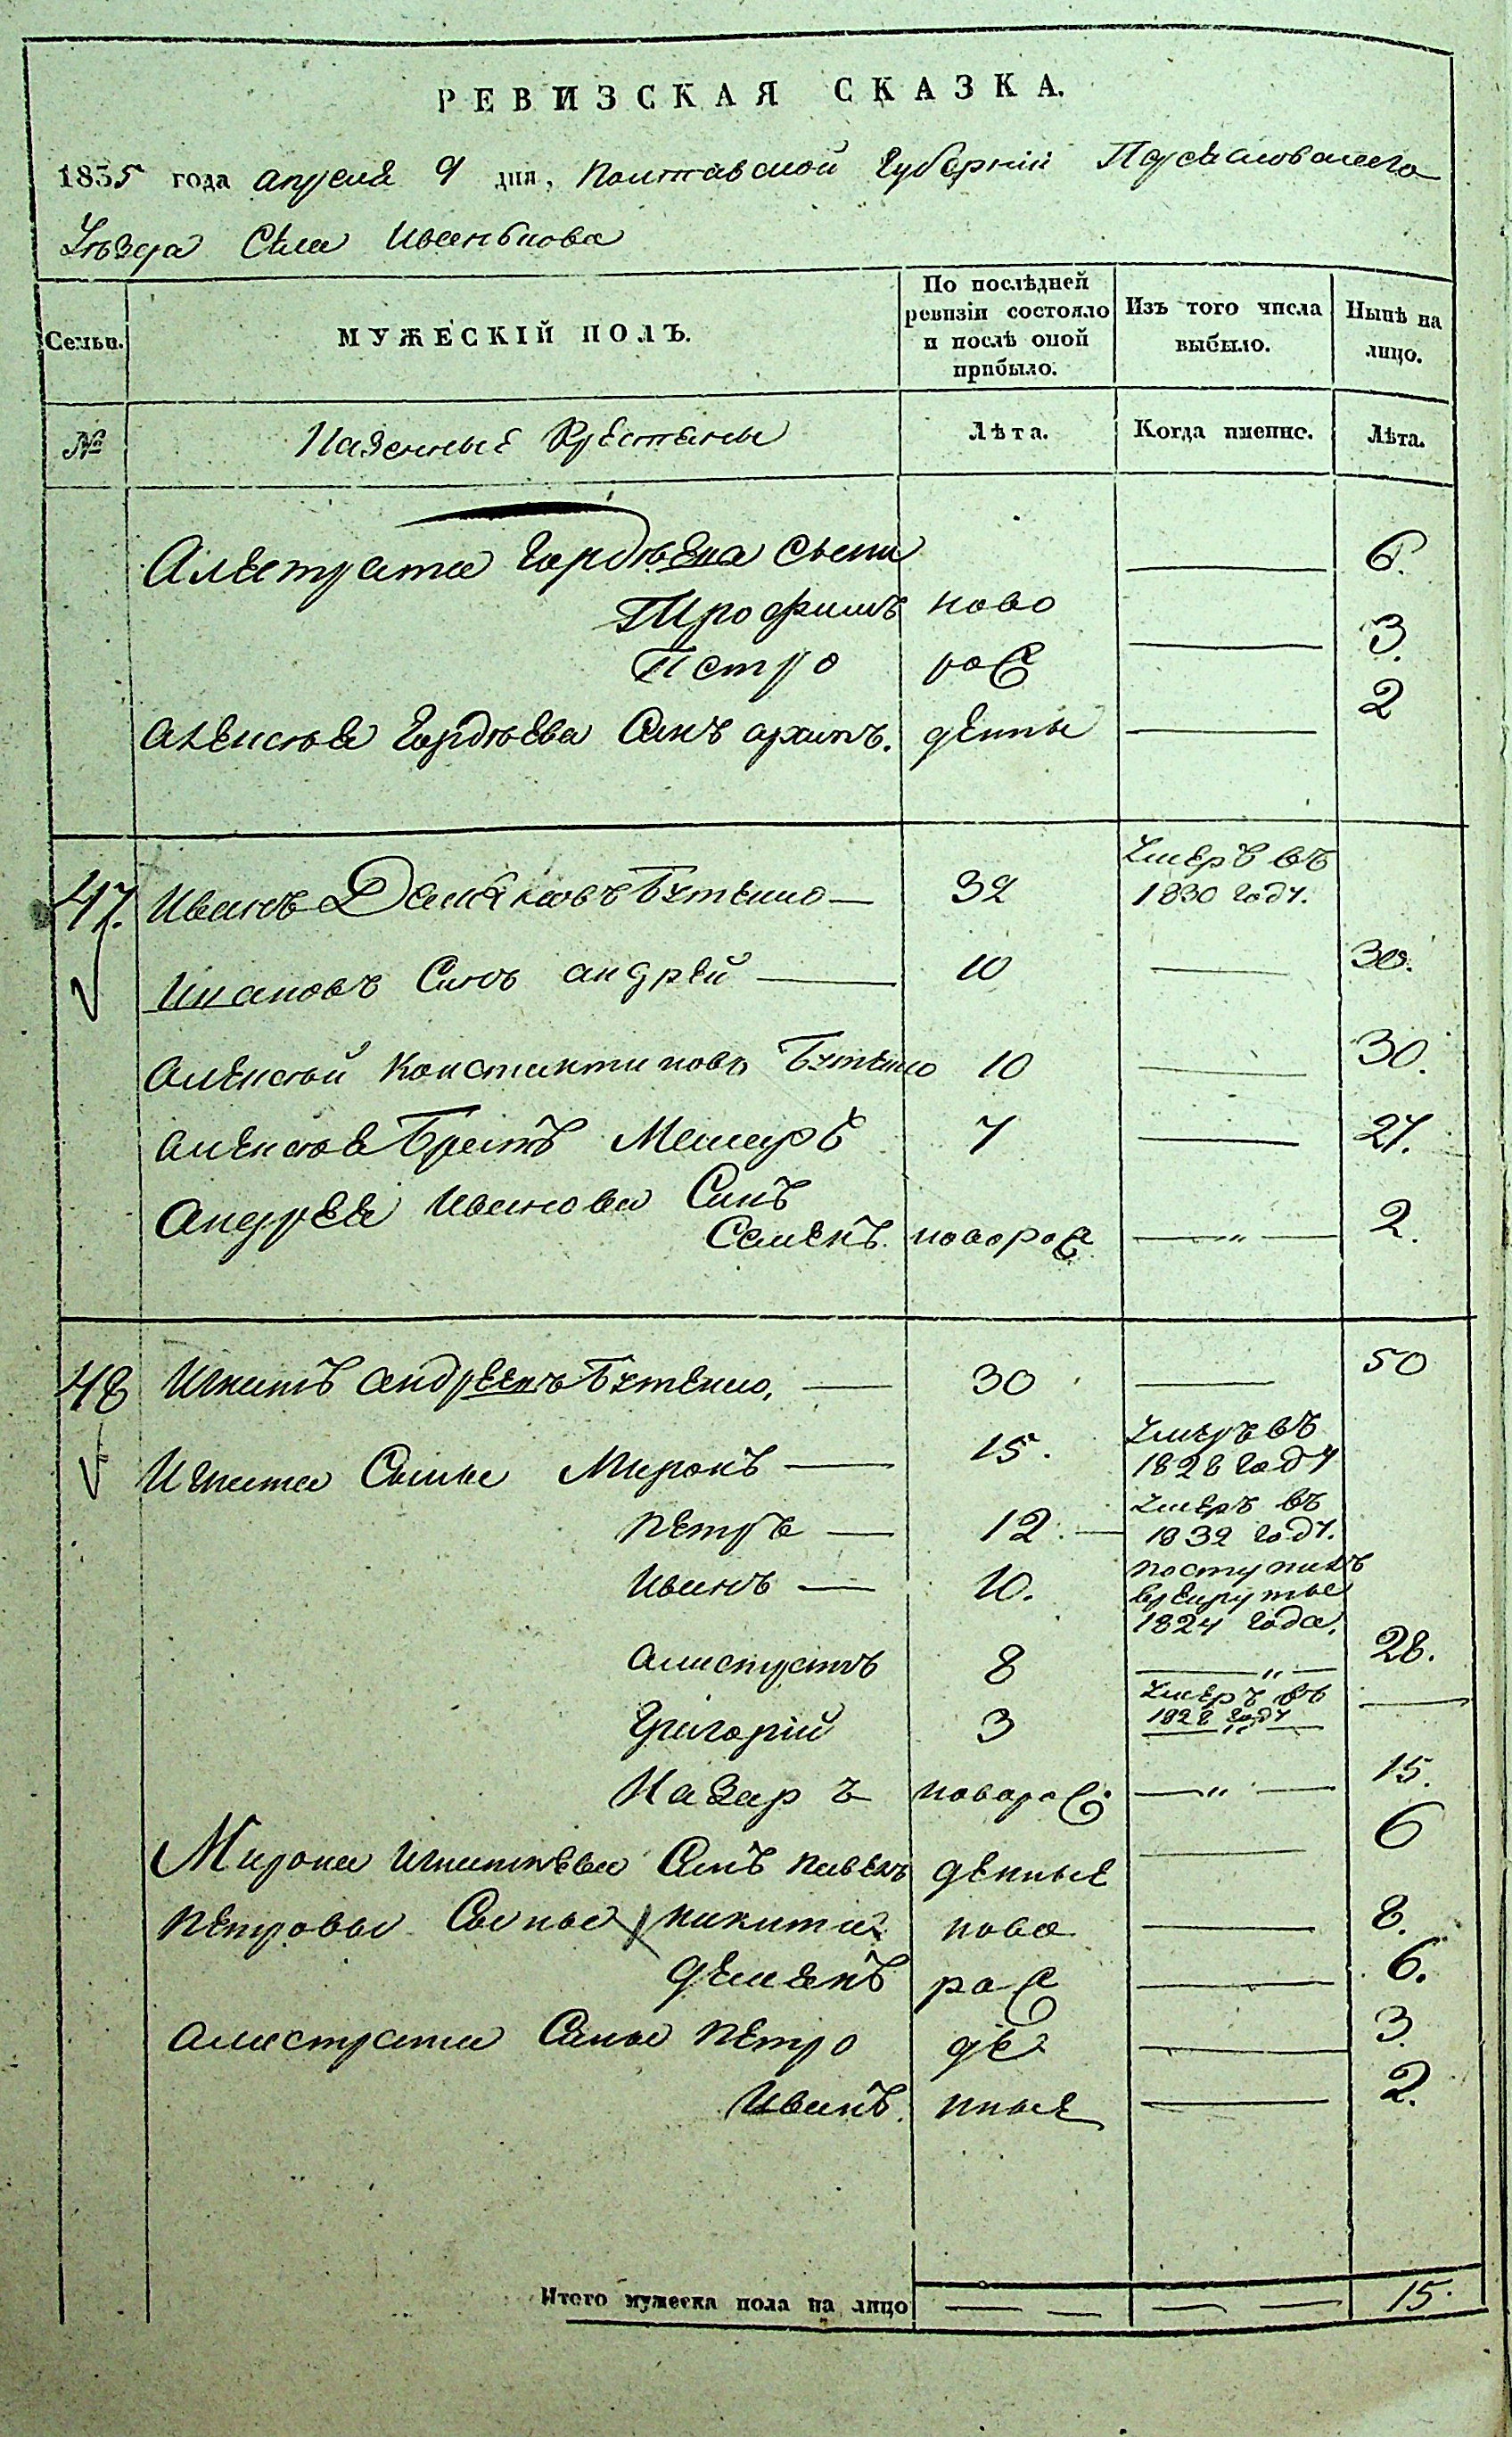 РЕВИЗСКАЯ СКАЗКА.
1835 года апреля 9 дня, Полтавской Губерніи
Уѣзда Села Иванькова
Семьи. МУЖЕСКІЙ ПОЛЪ. По послѣдней ревизіи состояло и послѣ оной прибыло. Изъ того числа выбыло. Нынѣ на лицо.
№ Казенные Крестяны Лѣта. Когда именно. Лѣта.
Алистрата Гордѣева сыны 6.
Трофимъ ново 3.
Петро рож 2
Алексѣя Гордѣева Синъ архипъ. денны
47. Иванъ Демяновъ Бутенко — 32 Умеръ въ 1830 году.
Ивановъ Синъ андрей — 10 — 30.
Алексѣй Константиновъ Бутенко 10 — 30.
алексѣя Братъ Макаръ 7 — 27.
Андрея Иванова Синъ
Семенъ. новорож — " — 2.
48 Игнатъ андреевъ Бутенко, — 30 — 50
Игната Сыны Миронъ — 15. Умеръ въ 1828 году
Петръ — 12. — Умеръ въ 1832 году.
Иванъ — 10. поступилъ врекруты 1824 года.
алистратъ 8 — " — 28.
Григорій 3 Умеръ въ 1828 году — " — —
Назаръ новорож. — " — 15.
Мирона Игнатьева Синъ павелъ денные — 6
Петровы Сыны никита ново — 8.
Деменъ рож — 6.
алистрата Сины Петро де — 3.
Иванъ. нные — 2.
Итого мужеска пола на лицо — — — — 15.